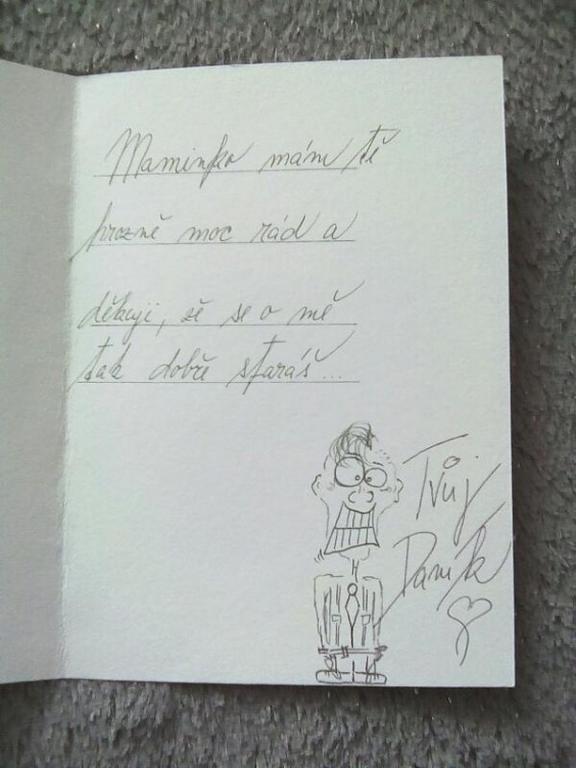 Maminko mám tě
hrozně moc rád a
děkuji, že se o mě
tak dobře staráš...
Tvůj
Daník